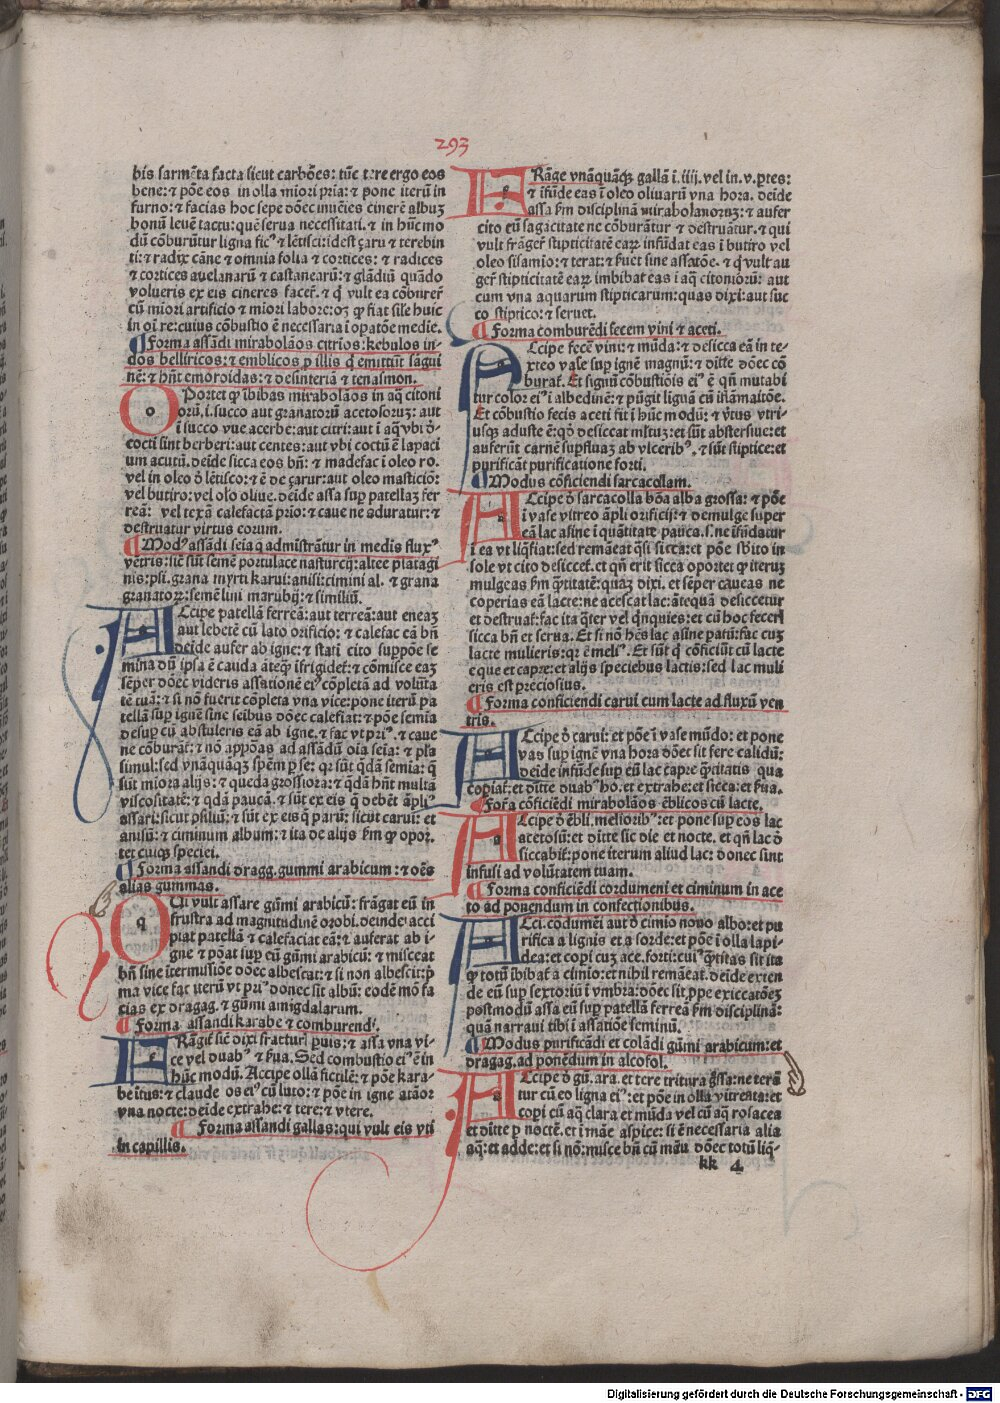 293
bis sarmēta facta sicut carbōes: tūc tere ergo eos
bene: ⁊ pōe eos in olla miori pria: ⁊ pone iterū in
furno: ⁊ facias hoc sepe dōec inueīes cinerē albuꝫ
bonū leuē tactu: quē serua necessitati. ⁊ in hūc mo
dū cōburūtur ligna ficꝰ ⁊ lētisci: idest çaru ⁊ terebin
ti: ⁊ radix cāne ⁊ omnia folia ⁊ cortices: ⁊ radices
⁊ cortices auelanarū ⁊ castanearū: ⁊ glādiū quādo
volueris ex eis cineres facer̄. ⁊ q̄ vult ea cōburer̄
cū miori artificio ⁊ miori labore: oꝫ ꝙ fiat sile huic
in oī re: cuius cōbustio ē necessaria ī opatōe medie.
¶ Forma assādi mirabolāos citrīos: kebulos in-
dos belliricos: ⁊ emblicos ꝓ illis q̄ emittūt sāgui
nē: ⁊ hn̄t emoroidas: ⁊ desinteriā ⁊ tenasmon.
OPortet ꝙ ibibas mirabolāos in aq̄ citoni
orū. i. succo aut granatorū acetosoruꝫ: aut
ī succo vue acerbe: aut citri: aut ī aq̄ vbi d̄-
cocti sint berberi: aut centes: aut vbi coctū ē lapaci
um acutū. deīde sicca eos bn̄: ⁊ madefac ī oleo ro.
vel in oleo d̄ lētisco: ⁊ ē de çarur: aut oleo masticīo:
vel butiro: vel oĺo oliue. deīde assa suꝑ patellaꝫ fer
reā: vel texā calefactā prio: ⁊ caue ne aduratur: ⁊
destruatur virtus eorum.
¶ Modꝰ assādi seia q̄ admīstrātur in medis fluxꝰ
vētris: sic sūt semē portulace nasturcij: altee plātagi
nis: psi. grana myrti karui: anisi: cimini al. ⁊ grana
granatoꝝ: semē lini marubij: ⁊ similiū.
ACcipe patellā ferreā: aut terreā: aut eneaꝫ
aut lebetē cū lato orificio: ⁊ calefac eā bn̄
deīde aufer ab igne: ⁊ stati cito suppōe se
mina dū ipsa ē cauda āteq̄ ifrigidet̄: ⁊ cōmisce eaꝫ
sēper dōec videris assationē eiꝰ cōpletā ad volūta
tē tuā: ⁊ si nō fuerit cōpleta vna vice: pone iterū pa
tellā suꝑ ignē sine seībus dōec calefiat: ⁊ pōe semīa
desuꝑ cū abstuleris eā ab igne. ⁊ fac vt priꝰ. ⁊ caue
ne cōburāt̄: ⁊ nō appōas ad assādū oīa seīa: ⁊ plā
simul: sed vnāquāqꝫ spēm ꝑ se: qꝛ sūt q̄dā semia: q̄
sūt miora alijs: ⁊ queda grossiora: ⁊ q̄dā hn̄t multa
viscositatē: ⁊ q̄dā paucā. ⁊ sūt ex eis q̄ debēt ampliꝰ
assari: sicut psiliū: ⁊ sūt ex eis q̄ parū: sicut carui: et
anisū: ⁊ ciminum album: ⁊ ita de alijs ẜm ꝙ opor,
tet cuiqꝫ speciei.
¶ Forma assandi dragg. gummi arabicum: ⁊ oēs
alias gummas.
QUi vult assare gūmi arabicū: frāgat eū in
frustra ad magnitudinē orobi. deinde: acci
piat patellā ⁊ calefaciat eā: ⁊ auferat ab i-
gne ⁊ pōat suꝑ eū gūmi arabicū: ⁊ misceat
bn̄ sine itermissiōe dōec albescat: ⁊ si non albescit: p̄
ma vice fac iterū vt priꝰ donec sit albū: eodē mō fa
cias ex dragag. ⁊ gūmi amigdalarum.
¶ Forma assandi karabe ⁊ comburendi.
FRāgit̄ sic dixi fratturl puis: ⁊ assa vna vi-
ce vel duabꝰ ⁊ ẜua. Sed combustio eiꝰ ē in
hūc modū. Accipe ollā fictilē: ⁊ pōe kara-
be itus: ⁊ claude os eiꝰ cū luto: ⁊ pōe in igne atāor
vna nocte: deīde extrahe: ⁊ tere: ⁊ vtere.
¶ Forma assandi gallas: qui vult eis vti
in capillis.
FRāge vnāquāqꝫ gallā ī. iiij. vel in. v. ꝑtes:
⁊ ifūde eas ī oleo oliuarū vna hora. deīde
assa ẜm disciplinā mirabolanoruꝫ: ⁊ aufer
cito eū sagacitate ne cōburātur ⁊ destruātur. ⁊ qui
vult frāger̄ stupticitatē eaꝝ infūdat eas ī butiro vel
oleo sisamio: ⁊ terat: ⁊ ẜuet sine assatōe. ⁊ q̄ vult au
ger̄ stipticitatē eaꝝ imbibat eas ī aq̄ citonioru: aut
cum vna aquarum stipticarum: quas dixi: aut suc
co stiptico: ⁊ seruet.
¶ Forma comburēdi fecem vini ⁊ aceti.
ACcipe fecē vini: ⁊ mūda: ⁊ desicca eā in te-
xteo vase suꝑ ignē magnū: ⁊ ditte dōec cō
burat̄. Et signū cōbustiōis eiꝰ ē qn̄ mutabi
tur color eiꝰ ī albedinē: ⁊ pūgit liguā cū iflāmatiōe.
Et cōbustio fecis aceti fit ī hūc modū: ⁊ v̄tus vtri-
usqꝫ aduste ē: qd̄ desiccat ml̄tuꝫ: et sūt abstersiue: et
auferūt carnē suꝑfluaꝫ ab vlceribꝰ. ⁊ sūt stiptice: et
purificāt purificatione forti.
¶ Modus cōficiendi sarcacollam.
ACcipe d̄ sarcacolla bōa alba grossa: ⁊ pōe
ī vase vitreo āpli orificij: ⁊ demulge super
eā lac asine ī quātitate pauca. s. ne ifūdatur
ī ea vt liq̄fiat: sed remāeat q̄si sicca: et pōe sb̄ito in
sole vt cito desiccet. et qn̄ erit sicca oportet ꝙ iteruꝫ
mulgeas ẜm q̄titatē: quaꝫ dixi. et sēper caueas ne
coperias eā lacte: ne acescat lac: āteqͣ desiccetur
et destruat̄: fac ita q̄ter vel q̄nquies: et cū hoc fecerī
sicca bn̄ et serua. Et si nō hēs lac asine patū: fac cuꝫ
lacte mulieris: qꝛ ē meliꝰ. Et sūt q̄ cōficiūt cū lacte
eque et capre: et alijs speciebus lactis: sed lac muli
eris est preciosius.
¶ Forma conficiendi carui cum lacte ad fluxū ven
tris.
ACcipe d̄ carui: et pōe ī vase mūdo: et pone
vas suꝑ ignē vna hora dōec sit fere calidū:
deīde infūde suꝑ eū lac capre q̄titatis qua
copiat̄: et ditte duabꝰ ho. et extrahe: et sicca: et ẜua.
¶ Forꝰa cōficiēdi mirabolāos ēblicos cū lacte.
ACcipe d̄ ēbli. melioribꝰ: et pone suꝑ eos lac
acetosū: et ditte sic die et nocte. et qn̄ lac d̄
siccabit̄: pone iterum aliud lac: donec sint
infusi ad volūtatem tuam.
¶ Forma conficiēdi cordumeni et ciminum in ace
to ad ponendum in confectionibus.
ACci. codumēi aut d̄ cimio nouo albo: et pu
rifica a lignis et a sorde: et pōe ī olla lapi-
dea: et copi cuꝫ ace. forti: cui q̄titas sit ita
ꝙ totū ibibat̄ a cimio: et nihil remāeat. deīde exten
de eū suꝑ sextoriū ī vmbra: dōec sit ꝓpe exiccatōeꝫ
postmodū assa eū suꝑ patellā ferreā ẜm disciplinā:
quā narraui tibi ī assatiōe seminū.
¶ Modus purificādi et colādi gūmi arabicum: et
dragag. ad ponēdum in alcofol.
ACcipe d̄ gū. ara. et tere tritura g̊ssa: ne terā
tur cū eo ligna eiꝰ: et pōe in olla vitreata: et
copi cū aq̄ clara et mūda vel cū aq̄ rosacea
et ditte ꝑ noctē. et ī māe aspice: si ē necessaria alia
aq̄: et adde: et si nō: misce bn̄ cū māu dōec totū liq̄-
kk 4
Digitalisierung gefördert durch die Deutsche Forschungsgemeinschaft - DFG